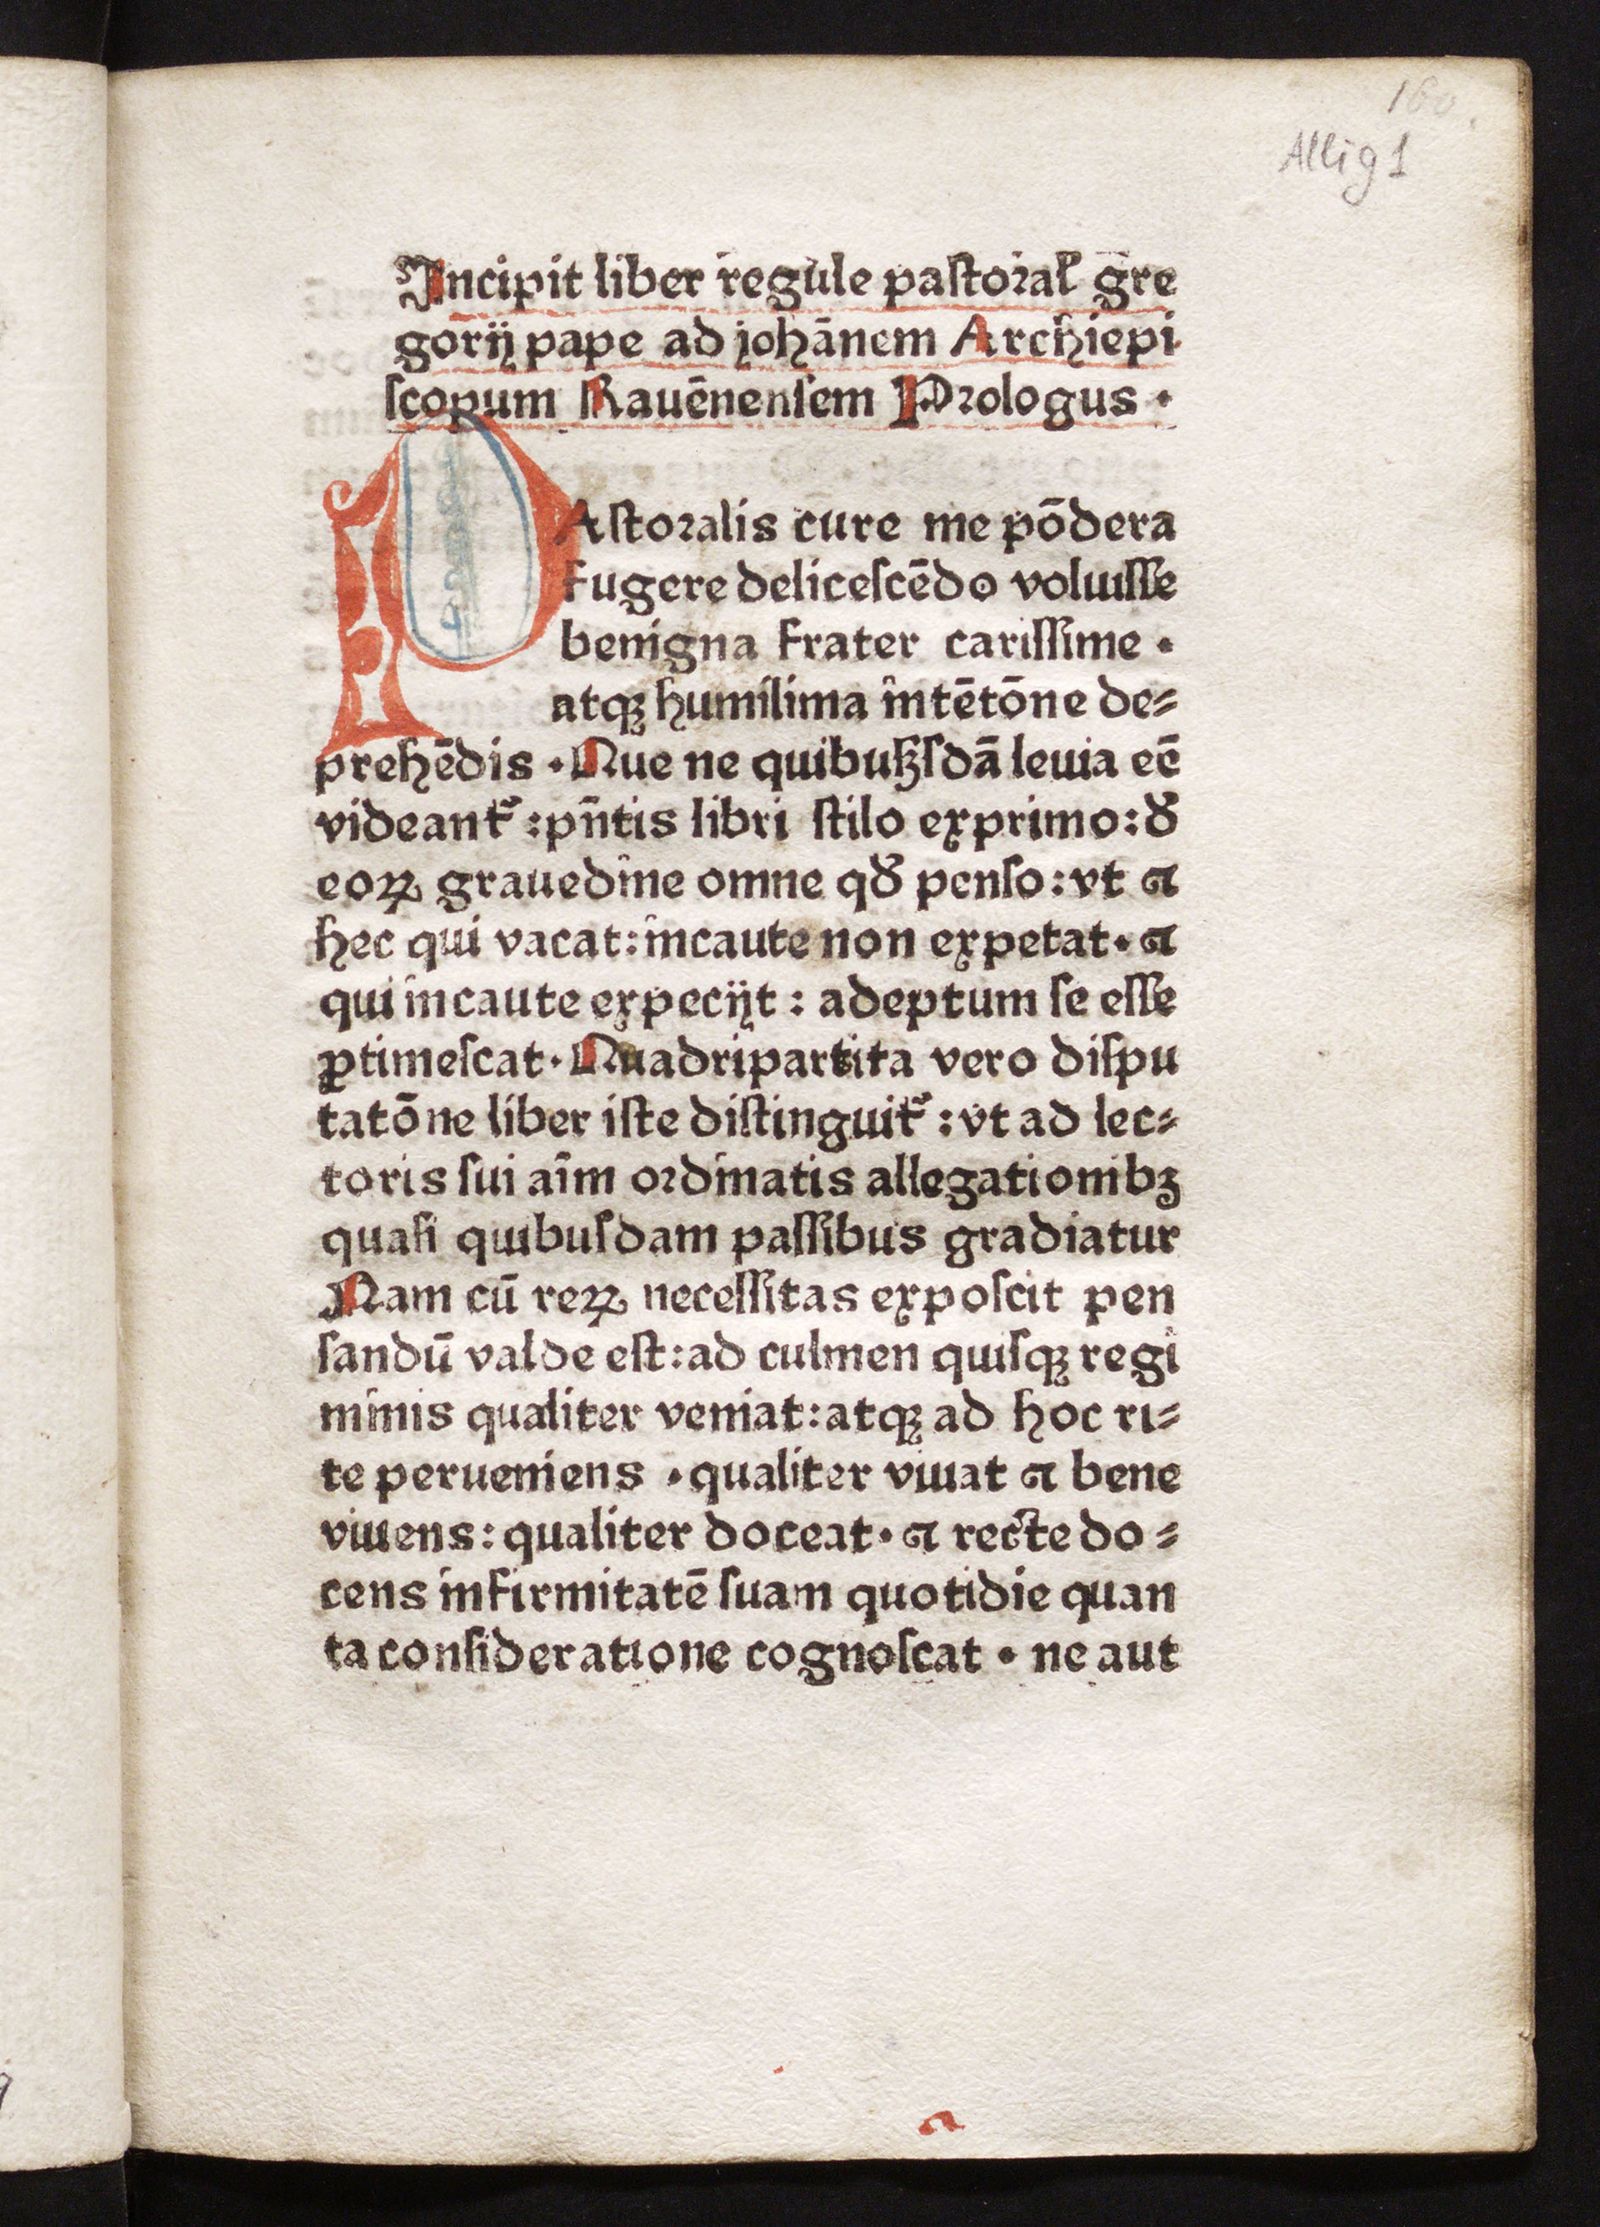 160
Allig 1
Incipit liber regule pastoral̃ gre
gorij pape ad johānem Archiepi
scopum Rauēnensem Prologus ·
PAstoralis cure me pōdera
fugere delicescēdo voluisse
benigna frater carissime ·
atqꝫ humilima intētōne de⸗
prehēdis · Que ne quibuꝫsdā leuia eē
videantᷣ : pn̄tis libri stilo exprimo : ꝺ̄
eoꝝ grauedine omne qꝺ̄ penso : vt ⁊
hec qui vacat : incaute non expetat · ⁊
qui incaute expecijt : adeptum se esse
ꝑtimescat · Quadripartita vero dispu
tatōne liber iste distinguitᷣ : vt ad lec⸗
toris sui aīm ordinatis allegationibꝫ
quasi quibusdam passibus gradiatur
Nam cū reꝝ necessitas exposcit pen
sandū valde est : ad culmen quisqꝫ regi
minis qualiter veniat : atqꝫ ad hoc ri⸗
te perueniens · qualiter viuat ⁊ bene
viuens : qualiter doceat · ⁊ recte do⸗
cens infirmitatē suam quotidie quan
ta consideratione cognoscat · ne aut
a